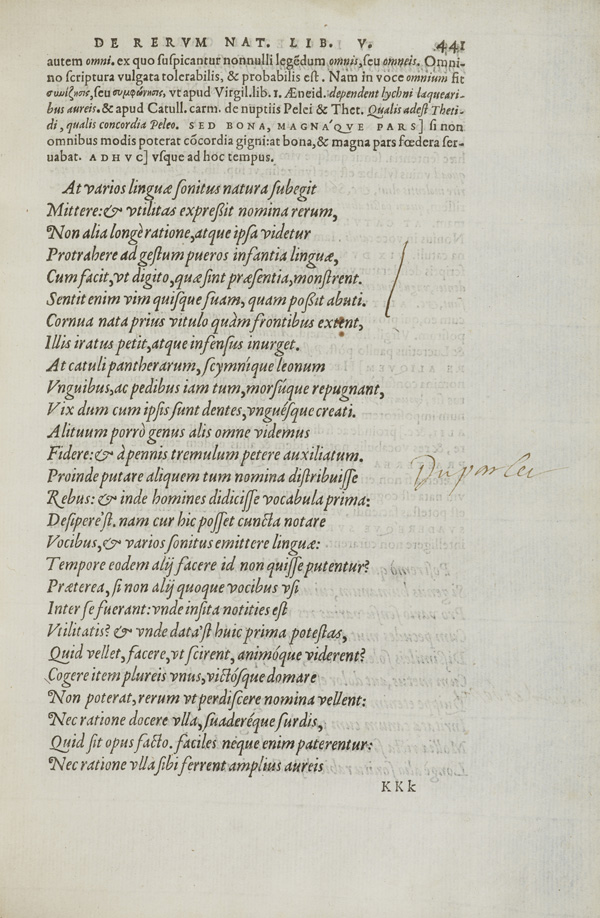 DE RERVM NAT. LIB. V. 441
autem omni. ex quo suspicantur nonnulli legẽdum omnis, seu omneis. Omni-
no scriptura vulgata tolerabilis, & probabilis est. Nam in voce omnium fit
συνίζησις, seu συμφώνησις, vt apud Virgil. lib. 1. Æneid. dependent lychni laqueari-
bus aureis. & apud Catull. carm. de nuptiis Pelei & Thet. Qualis adest Theti-
di, qualis concordia Peleo. SED BONA, MAGNÁQVE PARS] si non
omnibus modis poterat cõcordia gigni: at bona, & magna pars fœdera ser-
uabat. ADHVC] vsque ad hoc tempus.
At varios linguæ sonitus natura subegit
Mittere: & vtilitas expreßit nomina rerum,
Non alia longè ratione, atque ipsa videtur
Protrahere ad gestum pueros infantia linguæ,
Cum facit, vt digito, quæ sint præsentia, monstrent.
Sentit enim vim quisque suam, quam poßit abuti.
Cornua nata prius vitulo quàm frontibus extent,
Illis iratus petit, atque infensus inurget.
At catuli pantherarum, scymníque leonum
Vnguibus, ac pedibus iam tum, morsúque repugnant,
Vix dum cum ipsis sunt dentes, vnguésque creati.
Alituum porrò genus alis omne videmus
Fidere: & à pennis tremulum petere auxiliatum.
Proinde putare aliquem tum nomina distribuisse
Du parler
Rebus: & inde homines didicisse vocabula prima:
Desipere'st. nam cur hic posset cuncta notare
Vocibus, & varios sonitus emittere linguæ:
Tempore eodem alij facere id non quisse putentur?
Præterea, si non alij quoque vocibus vsi
Inter se fuerant: vnde insita notities est
Vtilitatis? & vnde data'st huic prima potestas,
Quid vellet, facere, vt scirent, animóque viderent?
Cogere item plureis vnus, victósque domare
Non poterat, rerum vt perdiscere nomina vellent:
Nec ratione docere vlla, suaderéque surdis,
Quid sit opus facto. faciles neque enim paterentur:
Nec ratione vlla sibi ferrent amplius aureis
KKk